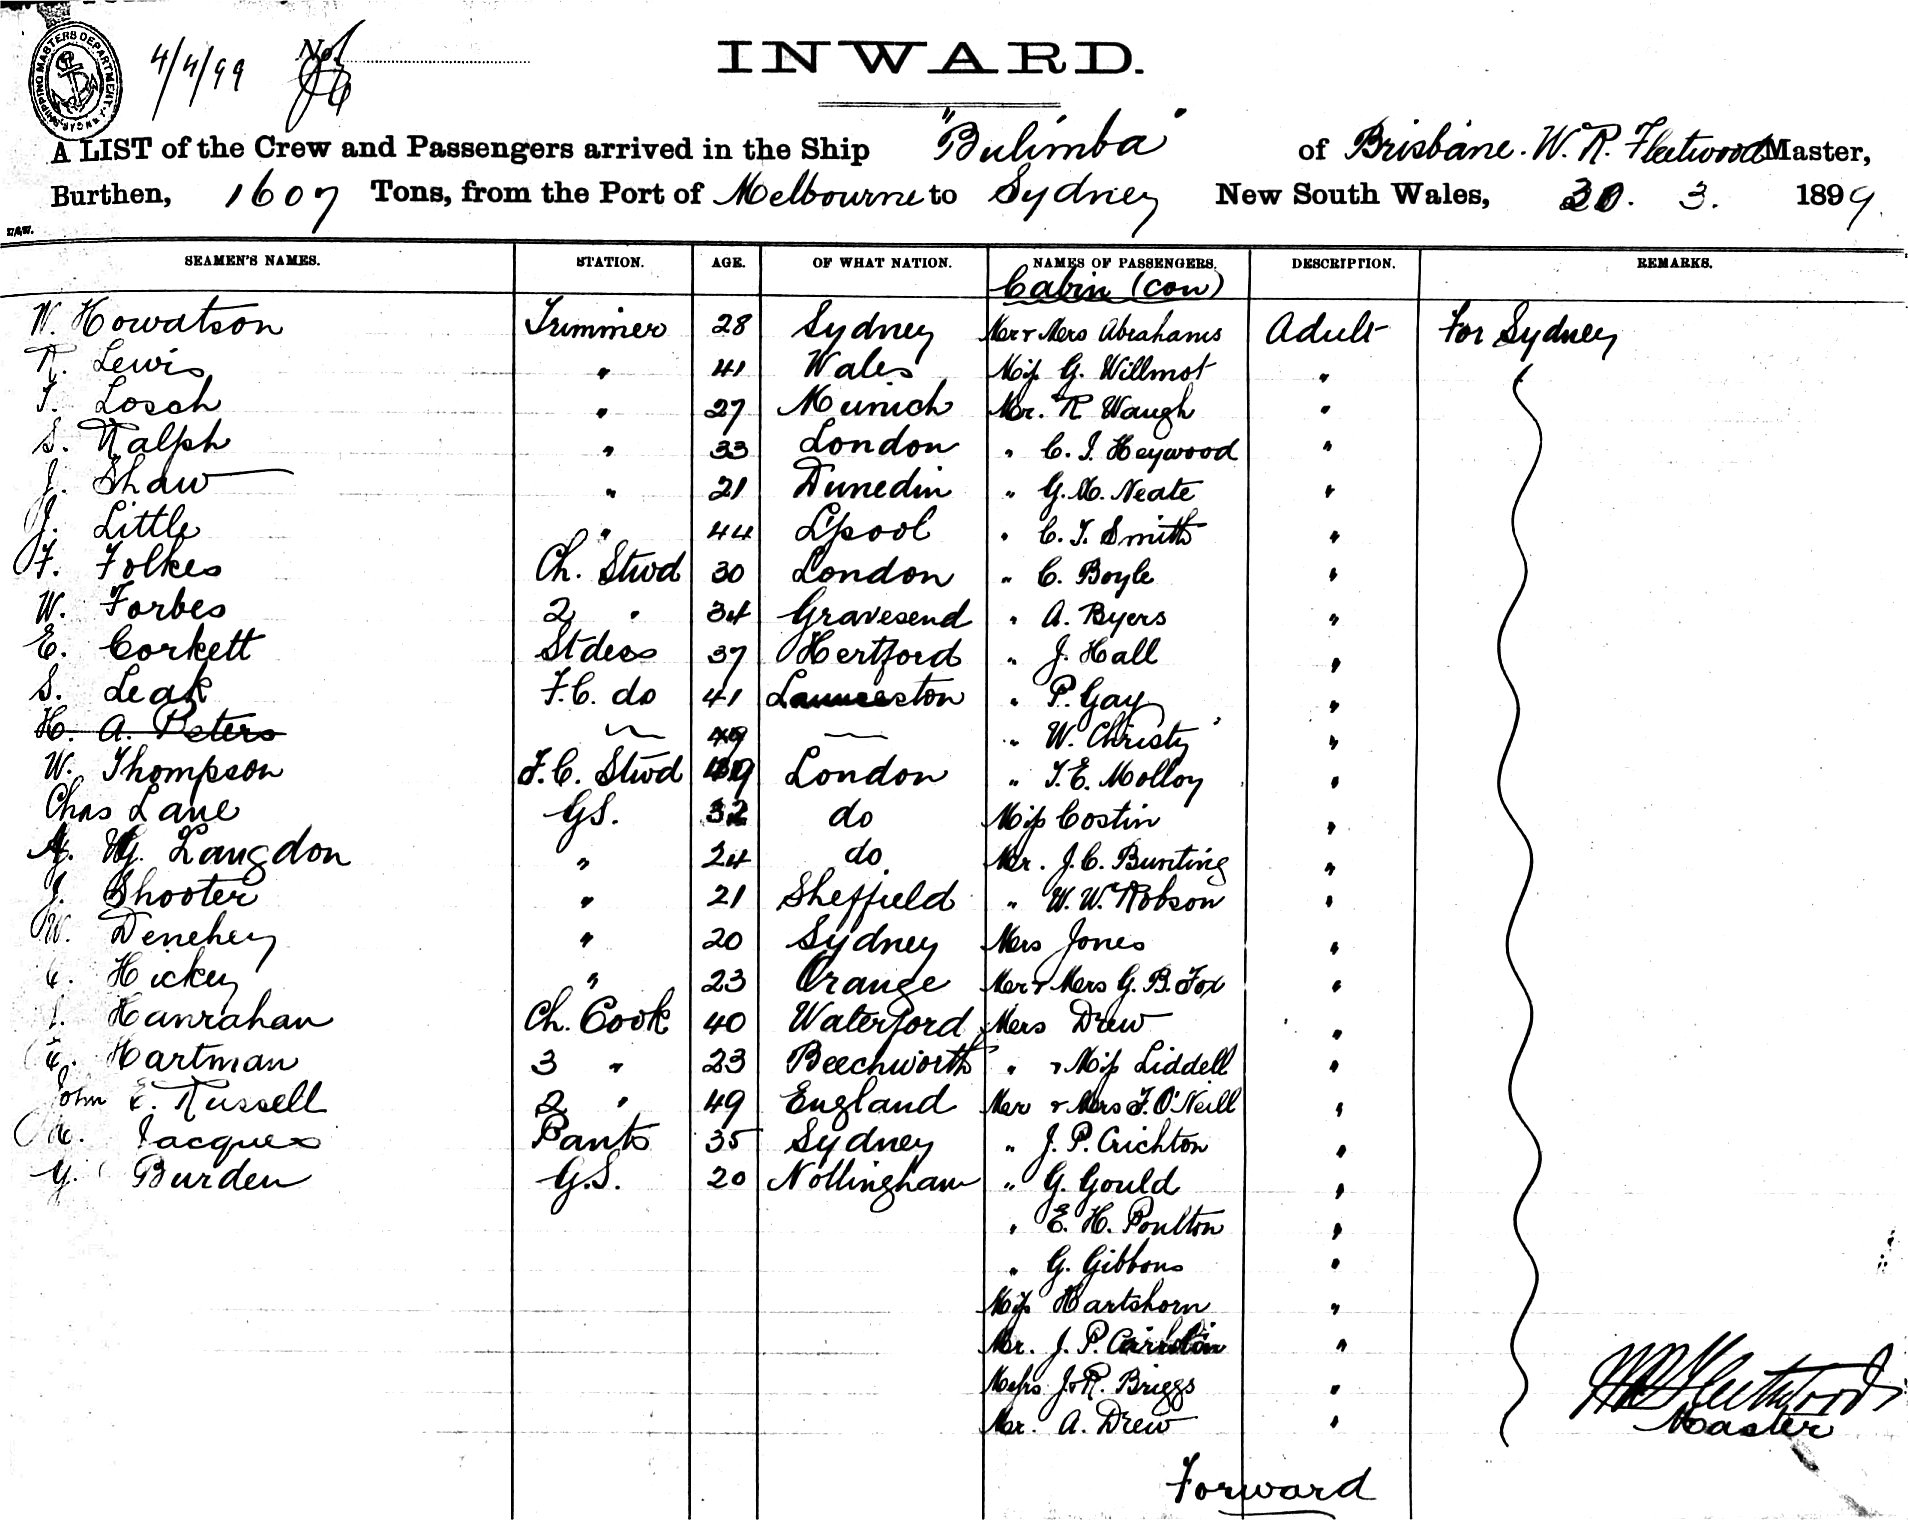 SHIPPING MASTERS DEPARTMENT
4/4/99 No
INWARD.
A LIST of the Crew and Passengers arrived in the Ship "Bulimba" of Brisbane. W. R. Fleetwood Master,
Burthen, 1607 Tons, from the Port of Melbourne to Sydney New South Wales, 30. 3. 1899.
SEAMEN'S NAMES. STATION. AGE. OF WHAT NATION. NAMES OF PASSENGERS. DESCRIPTION. REMARKS.
Cabin (con)
W. Howatson Trimmer 28 Sydney Mr & Mrs Abrahams Adult For Sydney
R. Lewis " 41 Wales Miss G. Willmot "
T. Losch " 27 Munich Mr. R Waugh "
S. Ralph " 33 London " C. I. Heywood "
J. Shaw " 21 Dunedin " G. M. Neate "
J. Little " 44 L'pool " C. T. Smith "
F. Folkes Ch. Stwd 30 London " C. Boyle "
W. Forbes 2 " 34 Gravesend " A. Byers "
E. Corkett Stdess 37 Hertford " J. Hall "
S. Leak F.C. do 41 Launceston " P. Gay "
H. A. Peters 49 " W. Christy "
W. Thompson F.C. Stwd London " T. E. Molloy "
Chas Lane GS. 32 do Miss Costin "
Langdon " 24 do Mr. J. C. Bunting "
J. Shooter " 21 Sheffield " W. W. Robson "
W. Denehey " 20 Sydney Mrs Jones "
C. Hickey " 23 Orange Mr & Mrs G. B. Fox "
Hanrahan Ch. Cook 40 Waterford Mrs Drew "
C. Hartman 3 " 23 Beechworth " & Miss Liddell "
John E. Russell 2 " 49 England Mr & Mrs F. O'Neill "
Jacques Pants 35 Sydney " J. P. Crichton "
G. Burden G.S. 20 Nottingham " G. Gould "
" E. H. Poulton "
" G. Gibbons "
Miss Hartshorn "
Mr. J. P. "
Messrs J. & R. Briggs "
Mr. A. Drew "
W R Fleetwood
Master
Forward